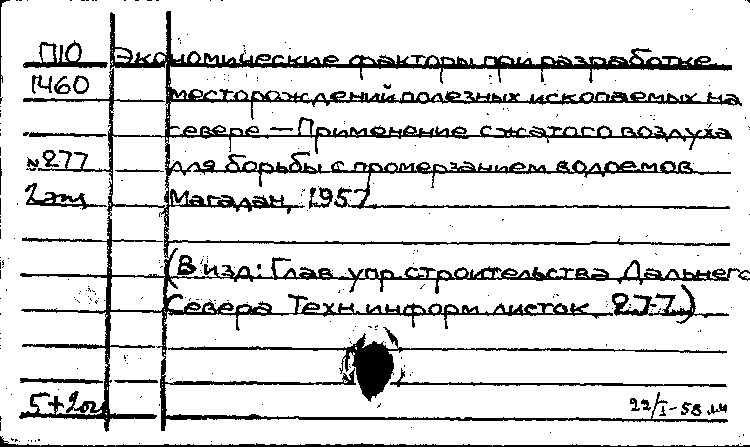 П10 Экономические факторы при разработке
1460 месторождений полезных ископаемых на
севере. — Применение сжатого воздуха
№277 для борьбы с промерзанием водоемов.
2экз Магадан, 1957.
(В изд: Глав. упр. строительства Дальнего
Севера Техн. информ. листок. 277.)
22/I-58